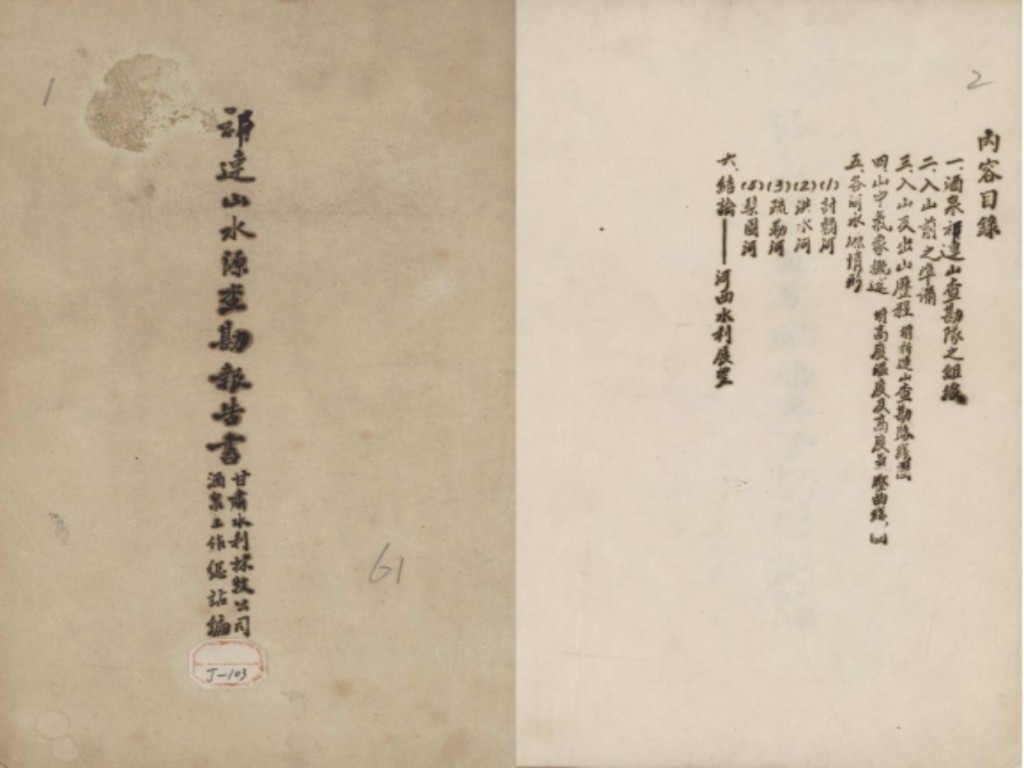 1
祁連山水源查勘報告書
甘肅水利林牧公司
酒泉工作總站編
J-103
61
2
內容目錄
一、酒泉祁連山查勘隊之組織
二、入山前之準備
三、入山及出山歷程 附祁連山查勘路線圖
四、山中氣象概述 附高度溫度及高度氣壓曲線圖
五、各河水源情形
(1)討賴河
(2)洪水河
(3)疏勒河
(4)梨園河
六、結論——河西水利展望